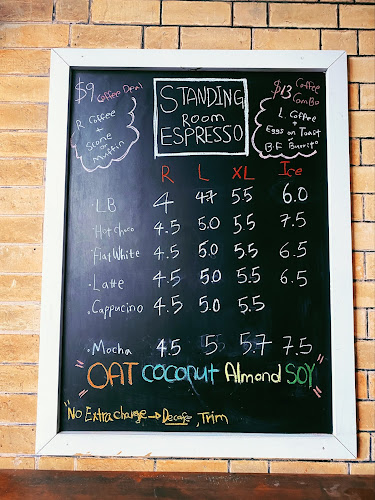 $9 Coffee Deal
R Coffee
+
Scone
or
Muffin
STANDING
ROOM
ESPRESSO
$13 Coffee
Combo
L Coffee
+
Eggs on Toast
B.F Burrito
R L XL Ice
LB 4 4.7 5.5 6.0
Hot choco 4.5 5.0 5.5 7.5
Flat White 4.5 5.0 5.5 6.5
Latte 4.5 5.0 5.5 6.5
Cappucino 4.5 5.0 5.5
Mocha 4.5 5 5.7 7.5
"OAT coconut Almond SOY"
"No Extra charge → Decafe, Trim